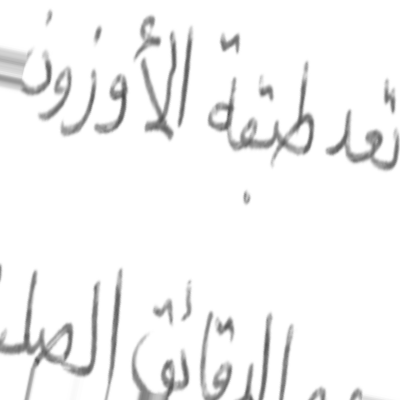 تعد طبقة الأوزون
الدقائق الصلـ